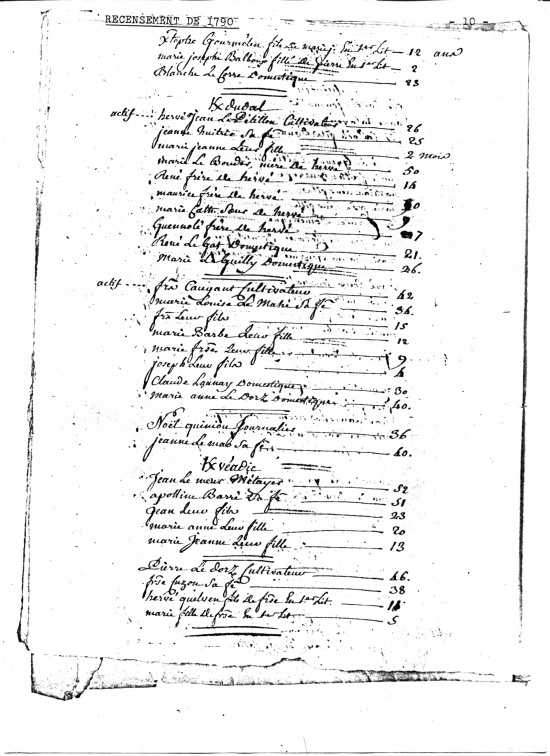 RECENSEMENT DE 1790 - 10 -
xtophe Gourmelin fils de marie j. En 1er Lit 12 ans
marie josephe fille De Pierre En 1er Lit 2
Blanche Le Corre Domestique 23
Kdudal
actif hervé jean Le Pétillon Cultivateur 26
jeanne sa fe 25
marie jeanne Leur fille 2 mois
marie Le Boudes, mère de hervé 50
René frère de hervé 14
maurice frère de hervé
marie Cath. Sœur De hervé 9
Guennolé frère de hervé 7
René Le Gât Domestique 21.
Marie Le Guilly Domestique 26.
actif frs Caugant Cultivateur 42
Marie Louise Le Mahé Sa fe 36
frs Leur fils 15
marie Barbe Leur fille 12
marie frse Leur fille 9
joseph Leur fils 4
Claude Launay Domestique 30
marie anne Le Dorz Domestique 40.
Noël quiniou Journalier 36
jeanne Le mao Sa fe 40.
Kvéadic
Jean Le meur Métayer 52
apolline Barré Sa fe 51
Jean Leur fils 23
marie anne Leur fille 20
marie Jeanne Leur fille 13
Pierre Le Dorz Cultivateur 46.
frse fuzon Sa fe 38
hervé quelven fils De frse En 1er Lit 11
marie fille De frse En 1er Lit 5